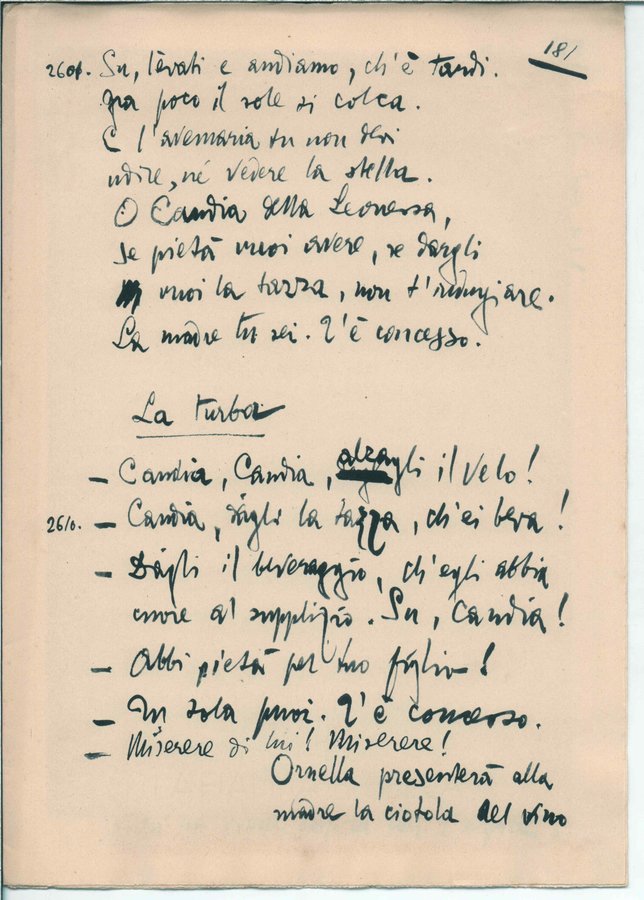 181
260i. Su, lèvati e andiamo, ch'è tardi.
Fra poco il sole si colca.
E l'avemaria tu non devi
udire, né vedere la stella.
O Candia della Leonessa,
se pietà vuoi avere, se dargli
vuoi la tazza, non t'indugiare.
La madre tu sei. T'è concesso.
La turba
– Candia, Candia, alzagli il velo!
2610. – Candia, dàgli la tazza, ch'ei beva!
– Dàgli il beveraggio, ch'egli abbia
cuore al supplizio. Su, Candia!
– Abbi pietà pel tuo figlio!
– Tu sola puoi. T'è concesso.
– Miserere di lui! Miserere!
Ornella presenterà alla
madre la ciotola del vino